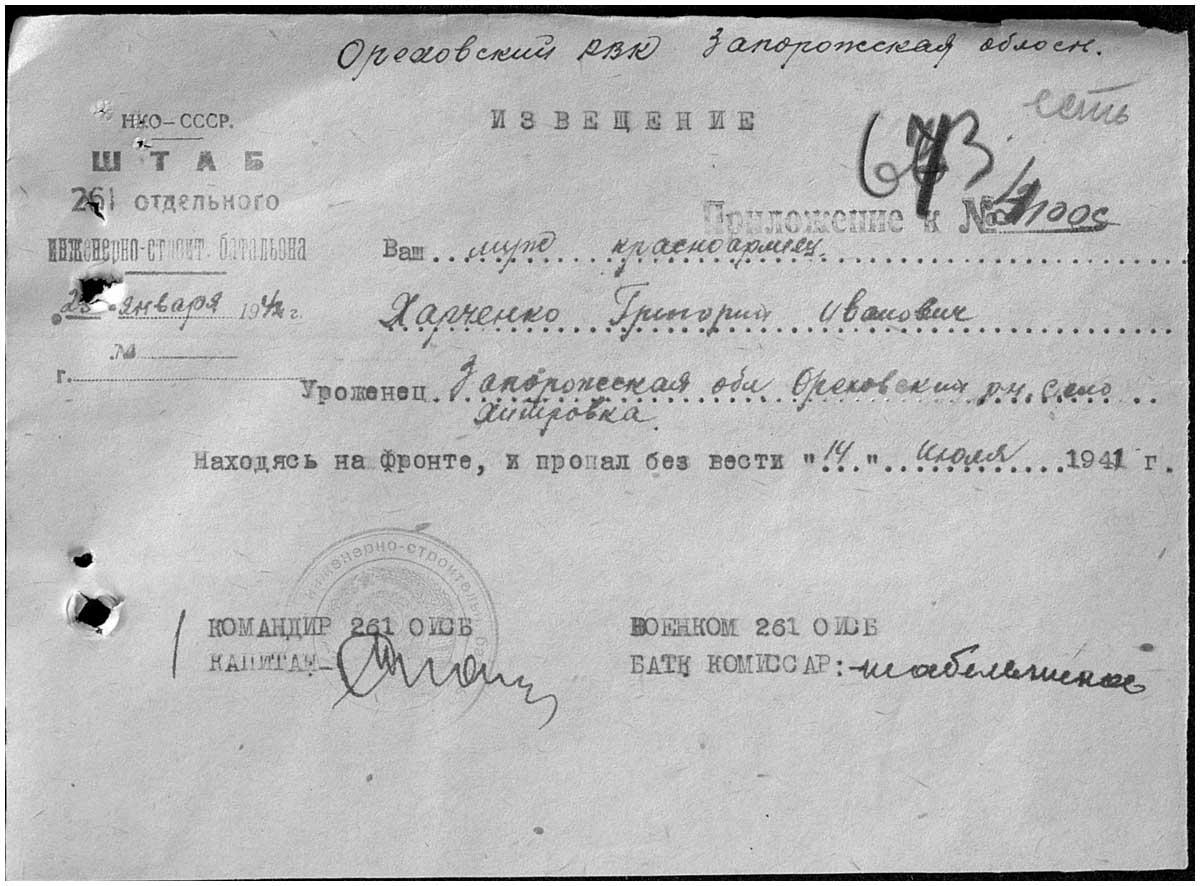 Ореховский РВК Запорожская област.
есть
НКО-СССР.
ИЗВЕЩЕНИЕ
ШТАБ
673
261 отдельного
Приложение к №
инженерно-строит. батальона
Ваш муж красноармеец
25 января 1942 г.
Харченко Григорий Иванович
№
г.
Уроженец Запорожская обл Ореховский рн. село
Хитровка.
Находясь на фронте, и пропал без вести "14" июля 1941 г.
инженерно-строительн
КОМАНДИР 261 ОИСБ
ВОЕНКОМ 261 ОИСБ
КАПИТАН-
БАТК КОМИССАР: